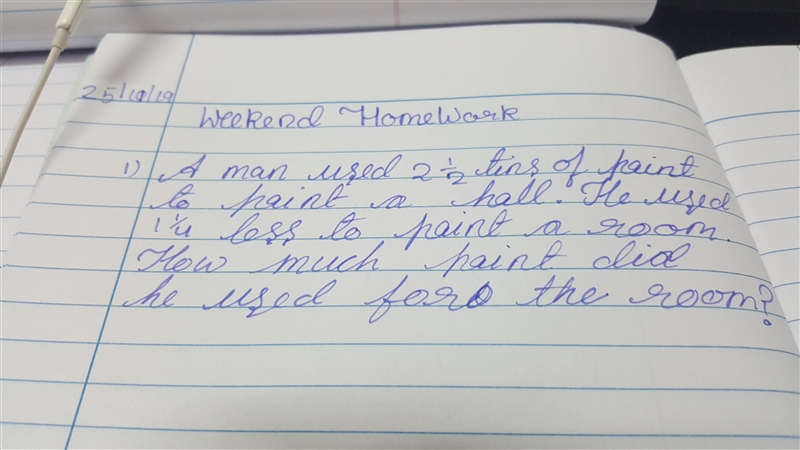 25/10/19
Weekend HomeWork
1) A man used 2 1/2 tins of paint
to paint a hall. He used
1 1/4 less to paint a room.
How much paint did
he used for the room?